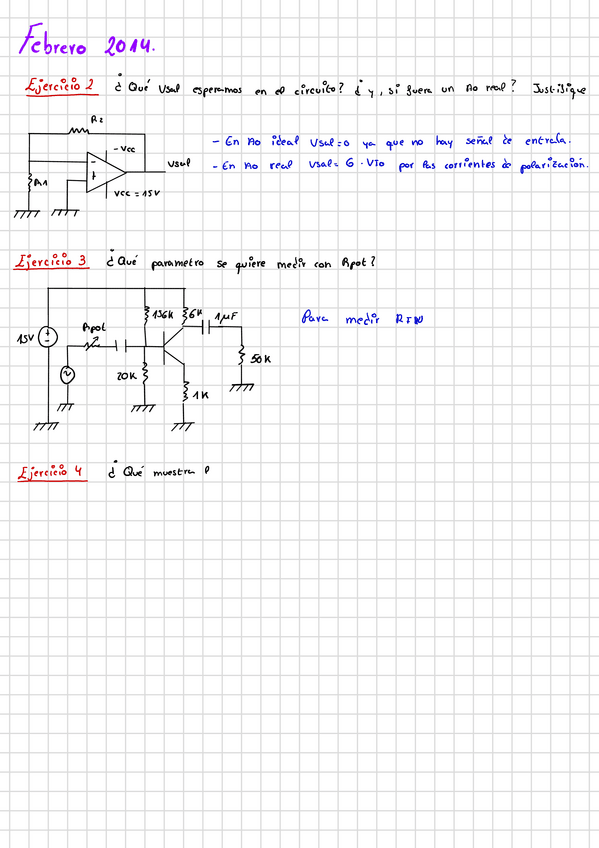 Febrero 2014.
Ejercicio 2 ¿ Qué Vsal esperamos en el circuito? ¿ y, si fuera un Ao real? Justifique
R2
-Vcc
Vsal
- En Ao ideal Vsal=0 ya que no hay señal de entrada.
- En Ao real Vsal= G · VIo por las corrientes de polarización.
-
+
R1
Vcc = 15V
Ejercicio 3 ¿ Qué parametro se quiere medir con Rpot?
136K
6K
1µF
Para medir RIN
15V
Rpot
50K
20K
1K
Ejercicio 4 ¿ Qué muestra P